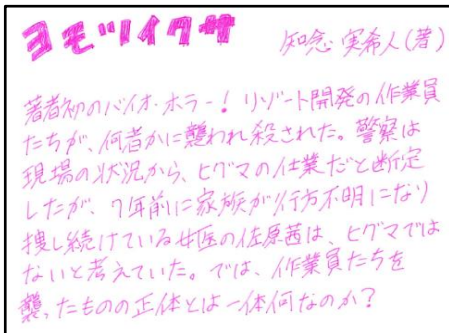 ヨモツイクサ 知念実希人(著)
著者初のバイオ・ホラー!リゾート開発の作業員
たちが、何者かに襲われ殺された。警察は
現場の状況から、ヒグマの仕業だと断定
したが、7年前に家族が行方不明になり
捜し続けている女医の佐原茜は、ヒグマでは
ないと考えていた。では、作業員たちを
襲ったものの正体とは一体何なのか?